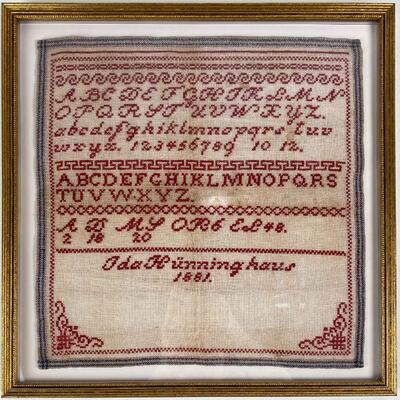 A B C D E F G H I K L M N
O P Q R S T U V W X Y Z.
a b c d e f g h i k l m n o p q r s t u v
w x y z. 1 2 3 4 5 6 7 8 9 10 12.
A B C D E F G H I K L M N O P Q R S
T U V W X Y Z.
Ida Hünninghaus
1881.